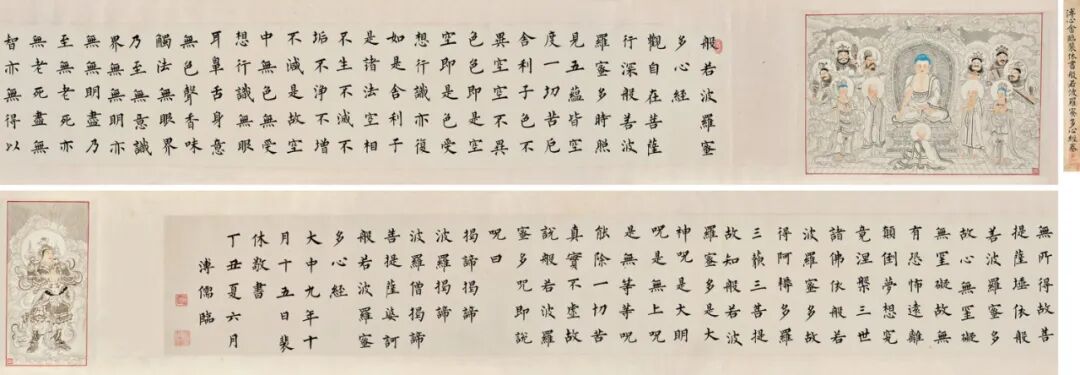 溥心畬臨裴休書般若波羅蜜多心經卷
般若波羅蜜
多心經
觀自在菩薩
行深般若波
羅蜜多時照
見五蘊皆空
度一切苦厄
舍利子色不
異空空不異
色色即是空
空即是色受
想行識亦復
如是舍利子
是諸法空相
不生不滅不
垢不淨不增
不減是故空
中無色無受
想行識無眼
耳鼻舌身意
無色聲香味
觸法無眼界
乃至無意識
界無無明亦
無無明盡乃
至無老死亦
無老死盡無
智亦無得以
無所得故菩
提薩埵依般
若波羅蜜多
故心無罣礙
無罣礙故無
有恐怖遠離
顛倒夢想究
竟涅槃三世
諸佛依般若
波羅蜜多故
得阿耨多羅
三藐三菩提
故知般若波
羅蜜多是大
神咒是大明
咒是無上咒
是無等等咒
能除一切苦
真實不虛故
說般若波羅
蜜多咒即說
咒曰
揭諦揭諦
波羅揭諦
波羅僧揭諦
菩提薩婆訶
般若波羅蜜
多心經
大中九年十
月十五日裴
休敬書
丁丑夏六月
溥儒臨